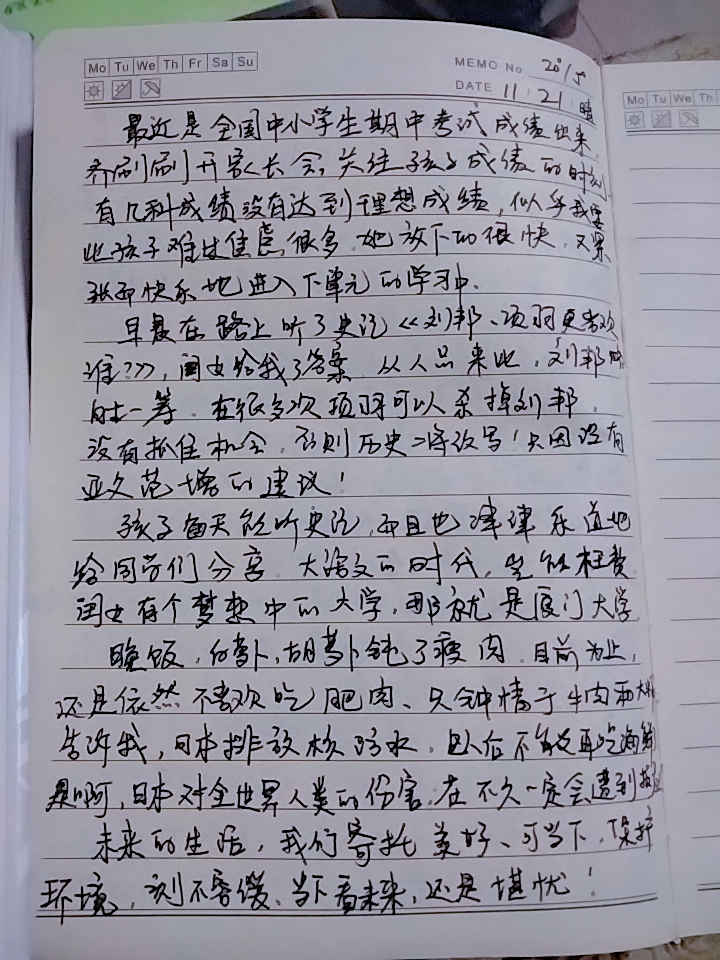 Mo Tu We Th Fr Sa Su
MEMO No.
DATE 11 21 晴
Mo Tu We Th
最近是全国中小学生期中考试成绩出来,
齐刷刷开家长会,关注孩子成绩的时刻
有几科成绩没有达到理想成绩,似乎我要
比孩子难过焦虑很多.她放下的很快.又紧
张而快乐地进入下单元的学习中.
早晨在路上听了史记《刘邦、项羽更喜欢
谁?》,闺女给我了答案.从人品来比,刘邦
一筹.在很多次项羽可以杀掉刘邦,
没有抓住机会,否则历史将改写!只因没有
亚父范增的建议!
孩子每天能听史记,而且也津津乐道地
给同学们分享.大语文的时代,岂能枉费
闺女有个梦想中的大学,那就是厦门大学
晚饭,白萝卜,胡萝卜钝了瘦肉.目前为止,
还是依然不喜欢吃肥肉、只钟情于牛肉和大
告诉我,日本排放核污水.以后不能再吃海鲜
是啊,日本对全世界人类的伤害.在不久一定会遭到
未来的生活,我们寄托美好、可当下,保护
环境,刻不容缓、当下看未来,还是堪忧!